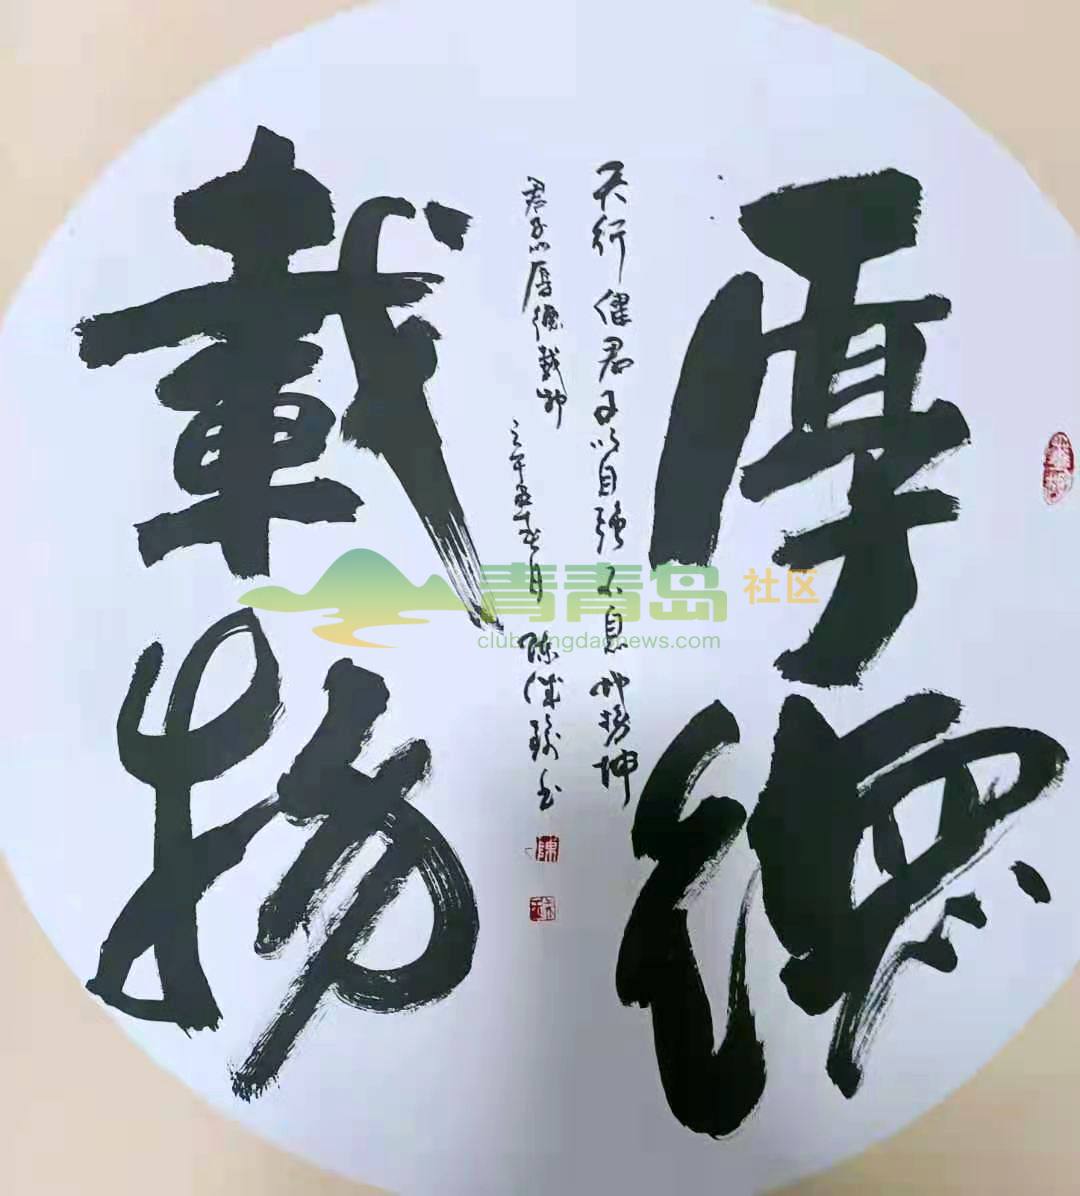 厚德
载物
天行健君子以自强不息地势坤
君子以厚德载物
春月
陈
书
陳
青青岛社区
club.qingdaonews.com